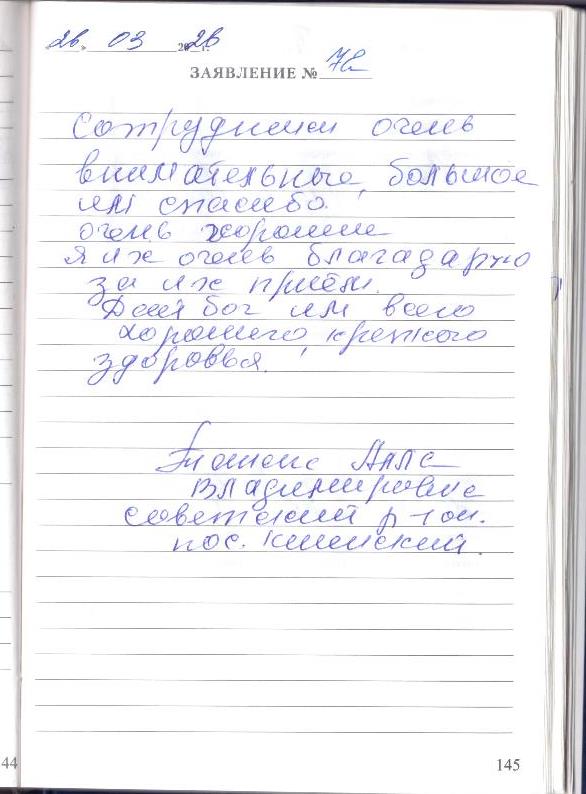 26. 03 2026 г.
ЗАЯВЛЕНИЕ № 72
Сотрудники очень
внимательные, большое
им спасибо.
очень хорошие
я их очень благадарю
за их приём.
Дай бог им всего
хорошего, крепкого
здоровья.
Алла
Владимировна
советский р-он.
пос.
44
145